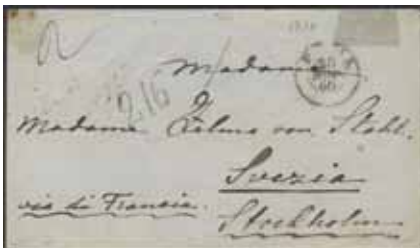 2
Madame
216
Madame Zelma von Stahl.
Svezia
via di Francia.
Stockholm